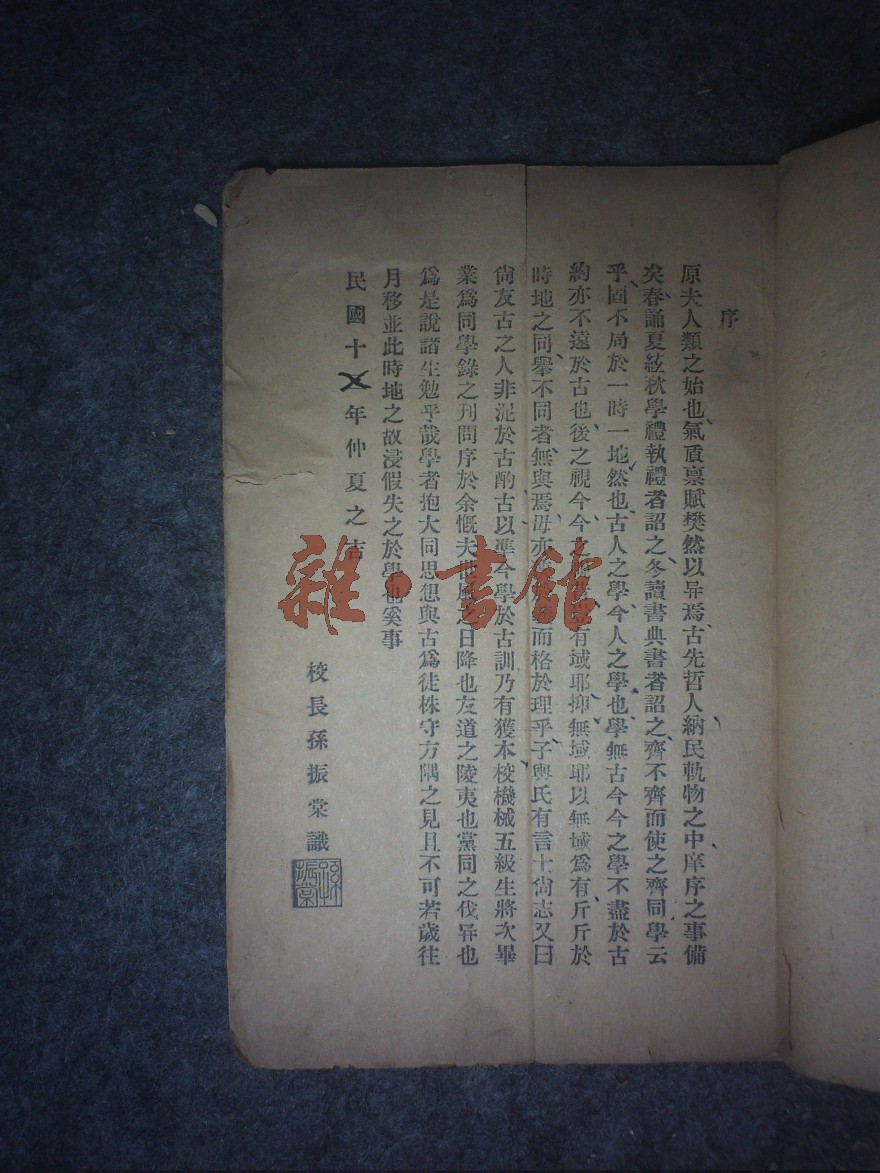 序
原夫人類之始也氣質禀賦樊然以异焉古先哲人納民軌物之中庠序之事備
矣春誦夏絃秋學禮執禮者詔之冬讀書典書者詔之齊不齊而使之齊同學云
乎固不局於一時一地然也古人之學今人之學也學無古今今之學不盡於古
約亦不遠於古也後之視今今之有域耶抑無域耶以無域爲有斤斤於
時地之同舉不同者無與焉毋亦而格於理乎子輿氏有言士尙志又曰
尙友古之人非泥於古酌古以準今學於古訓乃有獲本校機械五級生將次畢
業爲同學錄之刋問序於余慨夫世風之日降也友道之陵夷也黨同之伐异也
爲是說諸生勉乎哉學者抱大同思想與古爲徒株守方隅之見且不可若歲往
月移並此時地之故浸假失之於學也奚事
民國十乂年仲夏之吉
校長孫振棠識
孫振棠
雜·書館